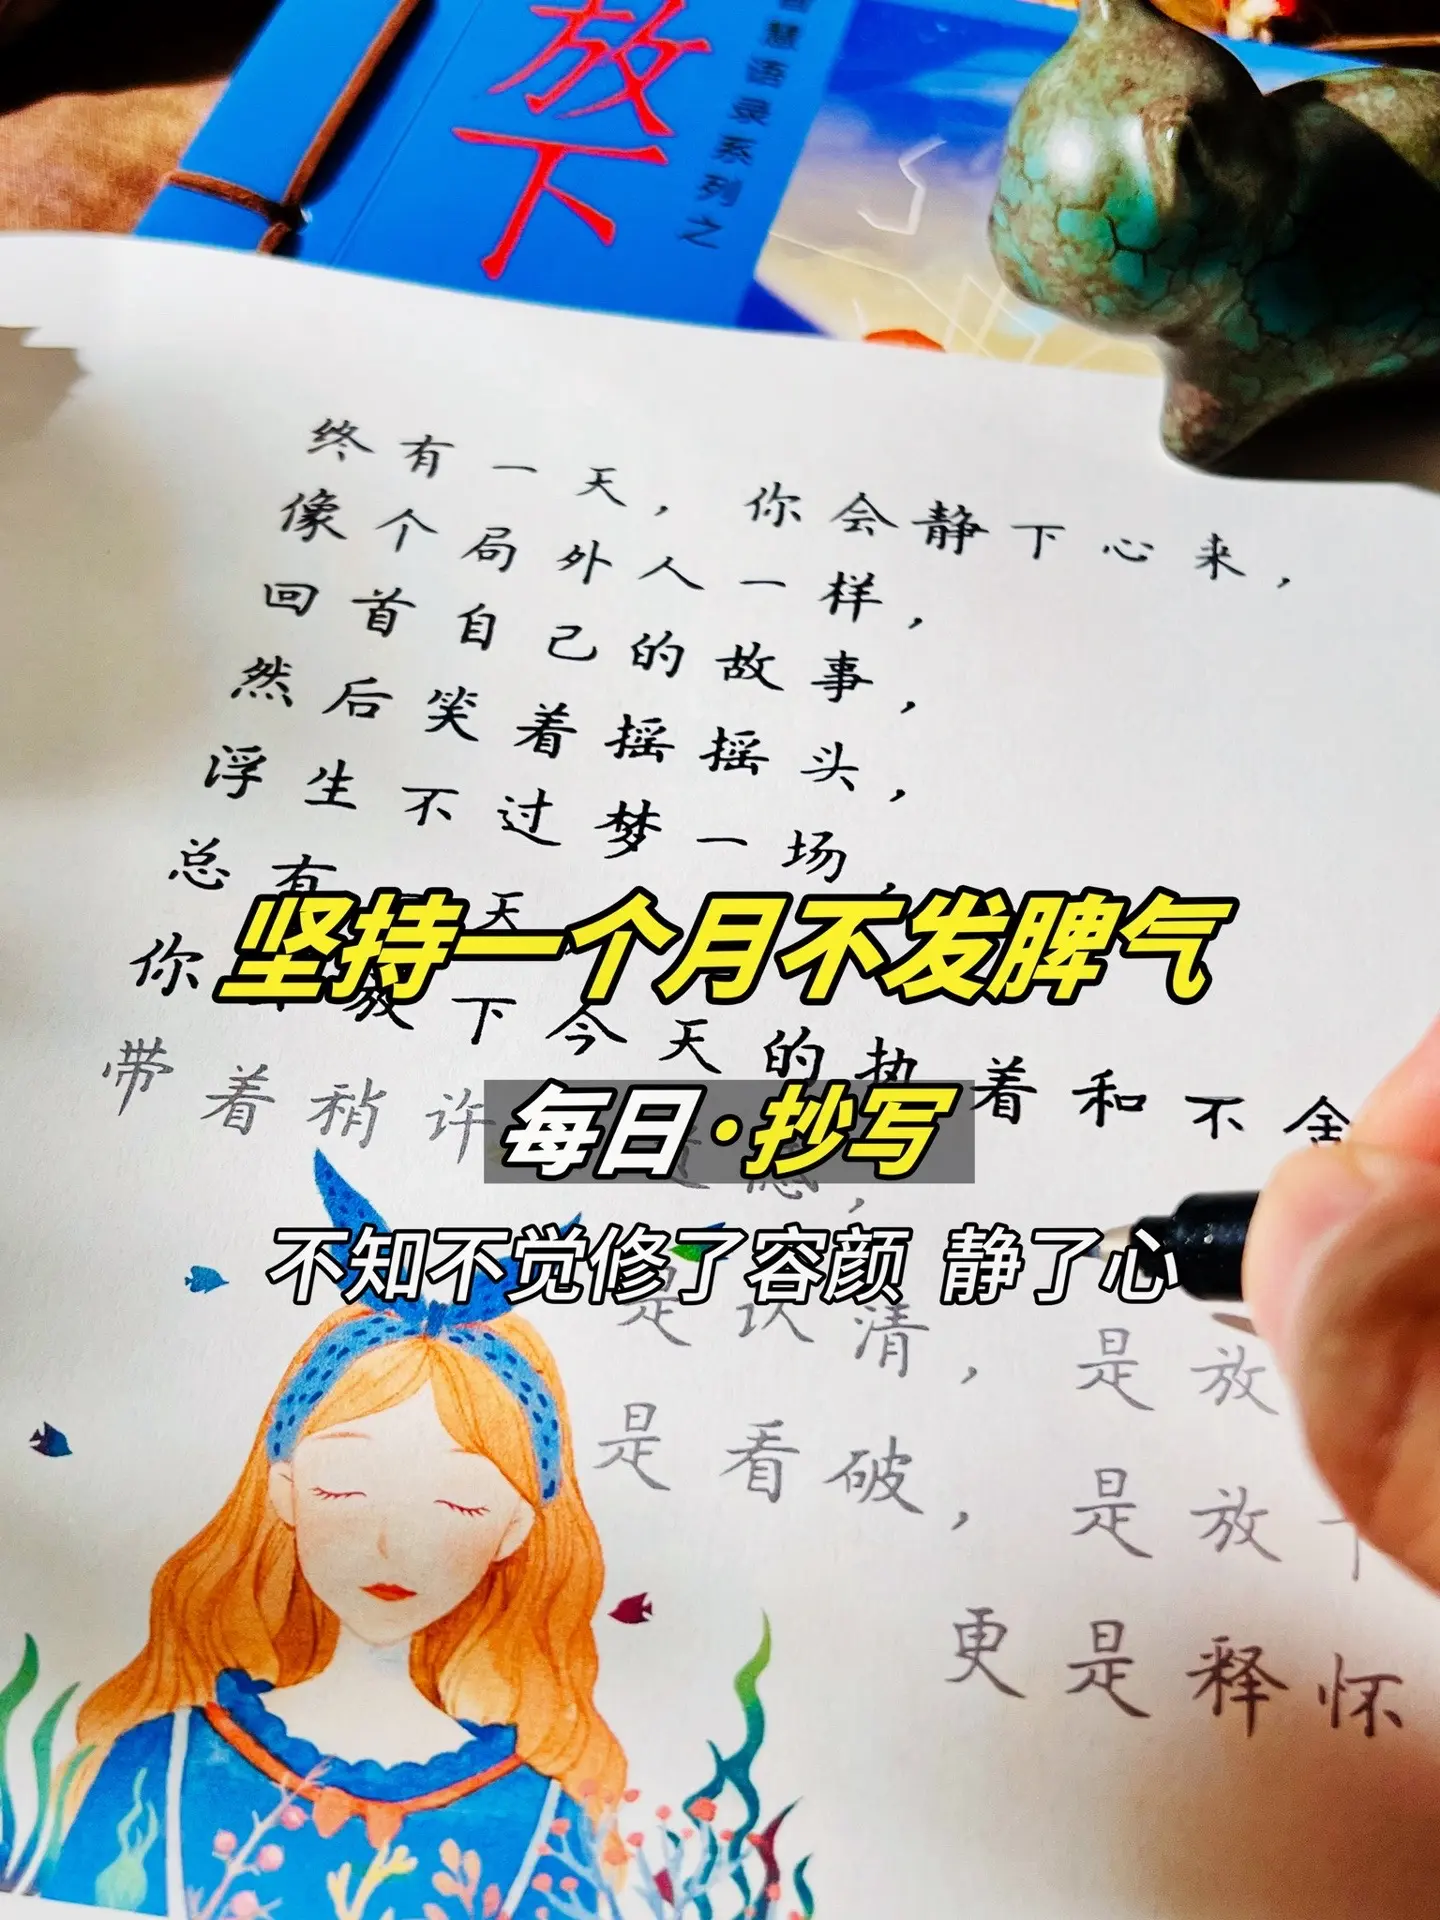 放下
智慧语录系列之
终有一天，你会静下心来，
像个局外人一样，
回首自己的故事，
然后笑着摇摇头，
浮生不过梦一场，
总有一天
你 放下今天的执着和不舍
坚持一个月不发脾气
带着稍许 遗憾，
每日·抄写
不知不觉修了容颜 静了心
是认清，是放
是看破，是放下
更是释怀